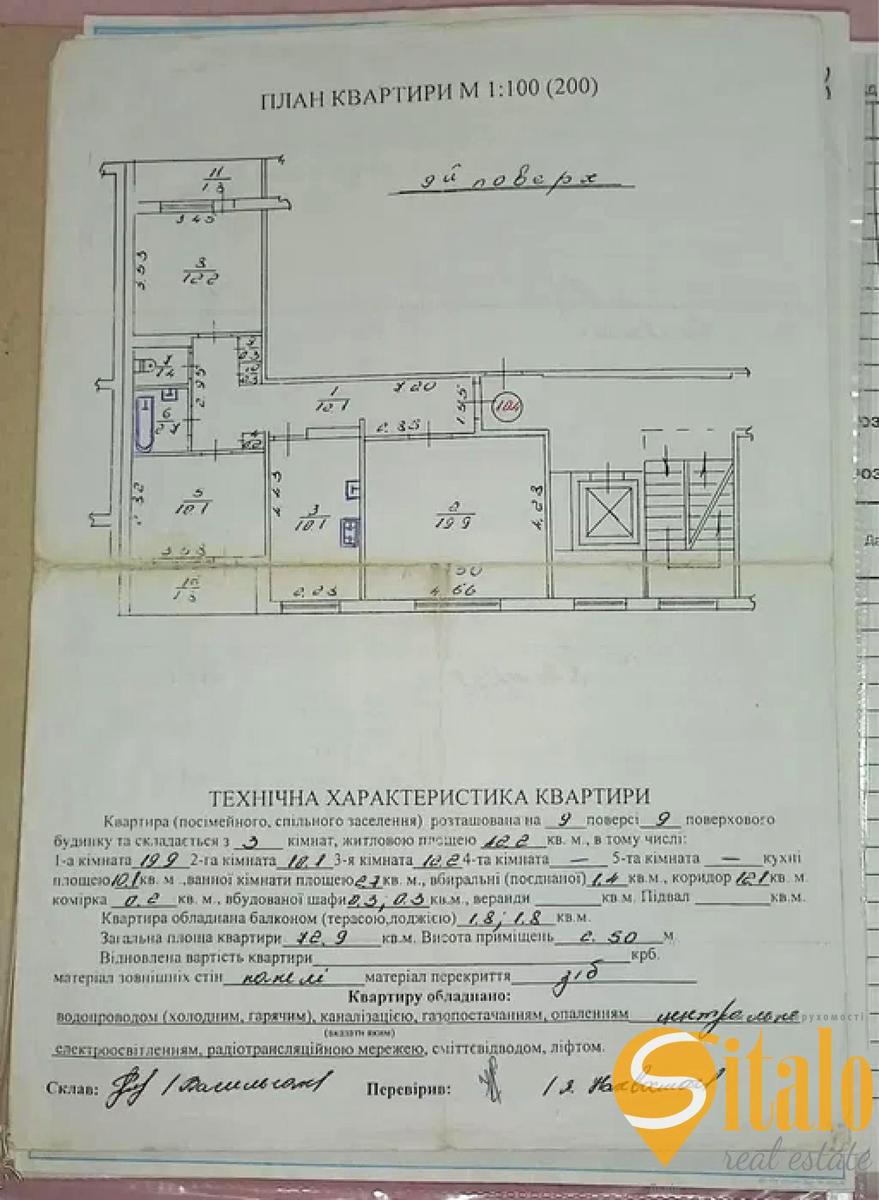 ПЛАН КВАРТИРИ М 1:100 (200)
9й поверх
11
1.8
3.45
3.53
3
12.2
7
1.4
2.95
6
2.7
1
12.1
7.20
1.55
2.35
104
5
10.1
4.45
3
10.1
2
19.9
4.23
10
1.8
2.23
4.66
ТЕХНІЧНА ХАРАКТЕРИСТИКА КВАРТИРИ
Квартира (посімейного, спільного заселення) розташована на 9 поверсі 9 поверхового
будинку та складається з 3 кімнат, житловою площею 42.2 кв. м., в тому числі:
1-а кімната 19.9 2-га кімната 10.1 3-я кімната 12.2 4-та кімната — 5-та кімната — кухні
площею 10.1 кв. м., ванної кімнати площею 2.7 кв. м., вбиральні (поєднаної) 1.4 кв.м., коридор 12.1 кв. м.
комірка 0.2 кв. м., вбудованої шафи 0.3; 0.3 кв.м., веранди кв.м. Підвал кв.м.
Квартира обладнана балконом (терасою,лоджією) 1.8; 1.8 кв.м.
Загальна площа квартири 72.9 кв.м. Висота приміщень 2.50 м
Відновлена вартість квартири крб.
матеріал зовнішніх стін панелі матеріал перекриття з/б
Квартиру обладнано:
водопроводом (холодним, гарячим), каналізацією, газопостачанням, опаленням центральне
(вказати яким)
електроосвітленням, радіотрансляційною мережею, сміттєвідводом, ліфтом.
Склав: Перевірив:
Sitalo
real estate